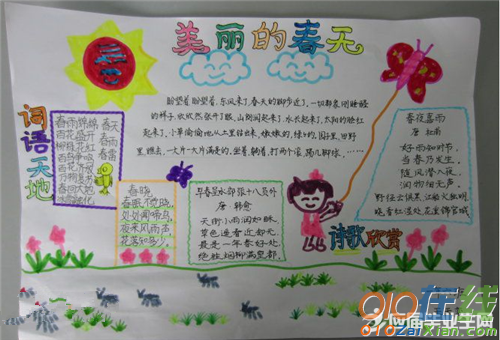 美丽的春天
盼望着,盼望着,东风来了,春天的脚步近了,一切都象刚睡醒
的样子,欣欣然张开了眼,山朗润起来了,水长起来了,太阳的脸红
起来了,小草偷偷地从土里钻出来,嫩嫩的,绿绿的,园子里,田野
里,瞧去,一大片一大片满是的,坐着,躺着,打两个滚,踢几脚球……
词语天地
春雨绵绵
百花盛开
柳绿花红
百鸟争鸣
百花齐放
万物复苏
春回大地
春天
春雨
春雷
春晓
春眠不觉晓,
处处闻啼鸟,
夜来风雨声,
花落知多少。
早春呈水部张十八员外
唐 韩愈
天街小雨润如酥,
草色遥看近却无
最是一年春好处,
绝胜烟柳满皇都.
诗歌欣赏
春夜喜雨
唐 杜甫
好雨知时节,
当春乃发生。
随风潜入夜,
润物细无声。
野径云俱黑,江船火独明,
晓看红湿处,花重锦官城
应届毕业生网
010在线
010zaixian.com